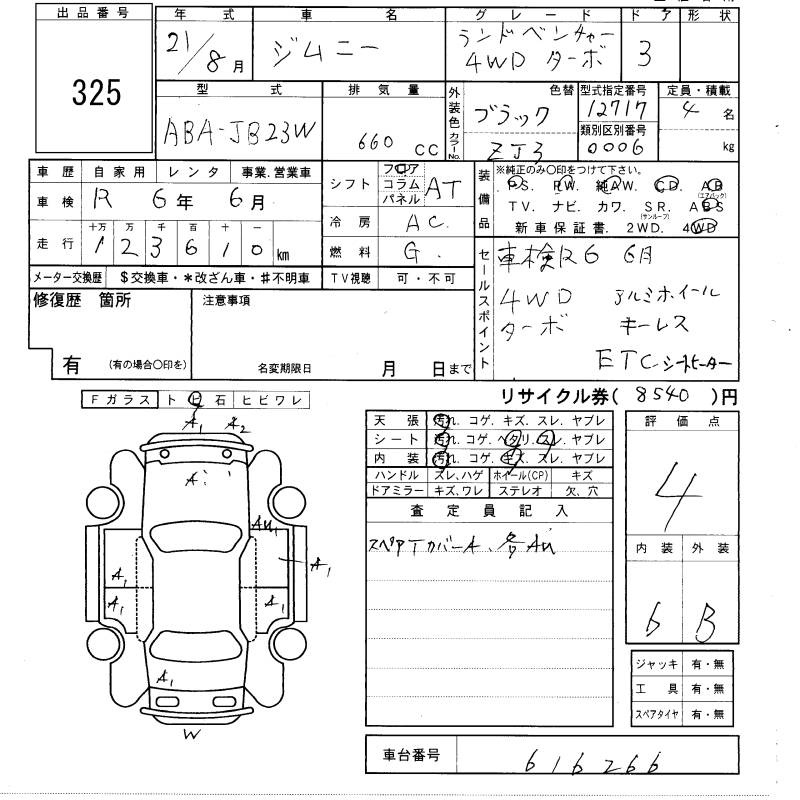 出品番号
325
年 式
21/8月
車 名
ジムニー
グレード
ランドベンチャー
4WD ターボ
ドア
3
形状
型 式
ABA-JB23W
排気量
660 CC
外装色
カラーNo.
色替
ブラック
ZJ3
型式指定番号
12717
類別区別番号
0006
定員・積載
4 名
kg
車歴 自家用 レンタ 事業.営業車
車検 R 6年 6月
走行 十万 万 千 百 十 一
1 2 3 6 1 0 km
メーター交換歴 $交換車・*改ざん車・#不明車
シフト フロア
コラム
パネル
AT
冷房 AC.
燃料 G.
TV視聴 可・不可
装備品
※純正のみ〇印をつけて下さい。
PS. PW. 純AW. CD. AB
(エアバック)
TV. ナビ. カワ. SR. ABS
(サンルーフ)
新車保証書. 2WD. 4WD
セールスポイント
車検R6 6月
4WD アルミホイール
ターボ キーレス
ETC シートヒーター
修復歴 箇所
有 (有の場合〇印を)
注意事項
名変期限日 月 日まで
リサイクル券( 8540 )円
Fガラス ト ビ 石 ヒビワレ
A1 A2
A
AU1
A1
A1
A1
A1
A1
W
天張 汚れ. コゲ. キズ. スレ. ヤブレ
シート 汚れ. コゲ. ヘタリ. スレ. ヤブレ
内装 汚れ. コゲ. キズ. スレ. ヤブレ
ハンドル スレ、ハゲ ホイール(CP) キズ
ドアミラー キズ、ワレ ステレオ 欠、穴
査定員記入
スペアTカバーA、各AU
評価点
4
内装 外装
6 B
ジャッキ 有・無
工具 有・無
スペアタイヤ 有・無
車台番号 616266